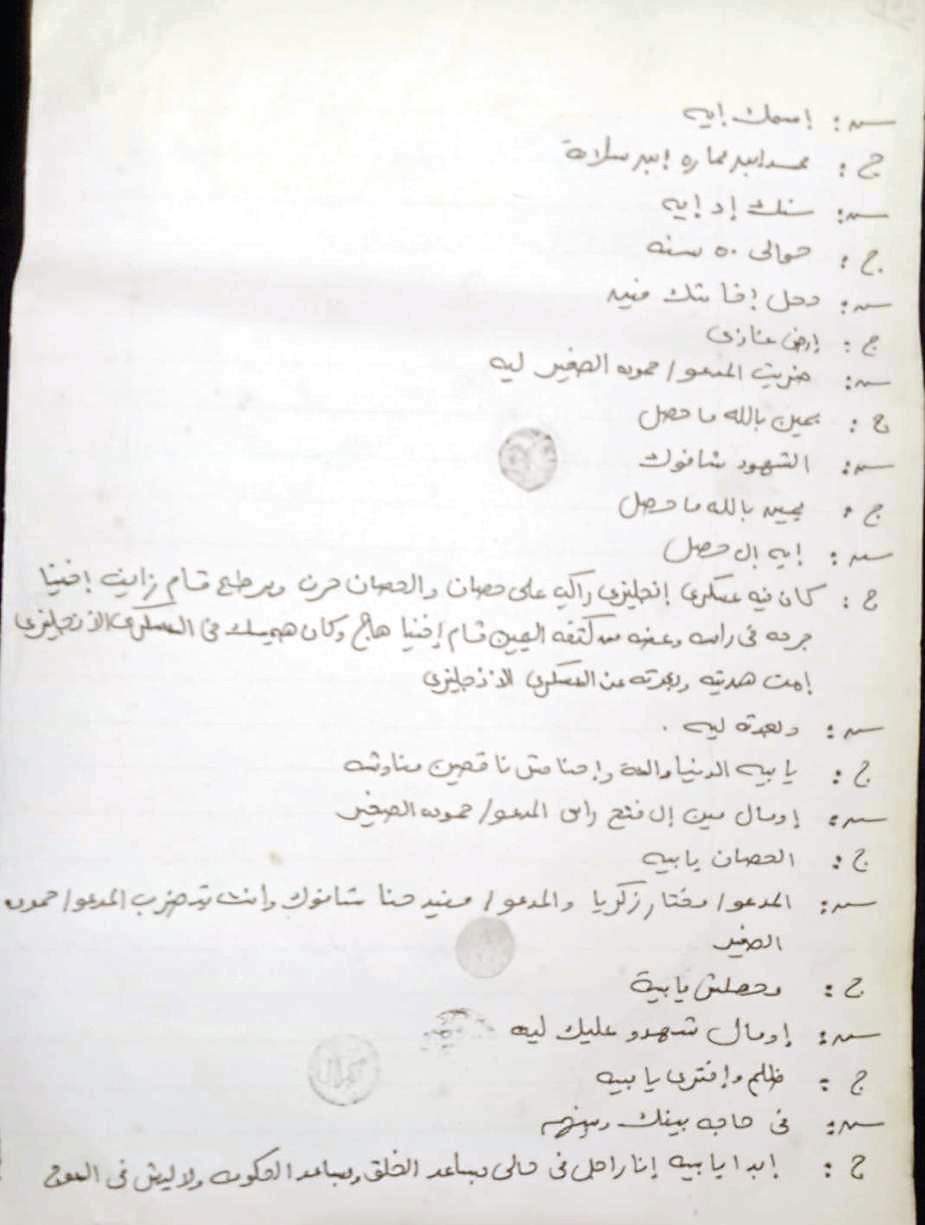 س : إسمك إيه
ج : محمد أبو عماره إبو سلامة
س : سنك إد إيه
ج : حوالى ٥٠ سنه
س : ومحل إقامتك فين
ج : إرض عنازى
س : ضربت المدعو / حموده الصغير ليه
ج : يمين بالله ما حصل
س : الشهود شافوك
ج : يمين بالله ما حصل
س : إيه إل حصل
ج : كان فيه عسكرى إنجليزى راكب على حصان والحصان حرن وبرطع قام
جرحه فى راسه وعضه من كتفه اليمين قام إفنديا هاج وكان هيمسك فى العسكرى الانجليزى
إمت هديته وبعدته عن العسكرى الانجليزى
س : وبعدته ليه .
ج : يا بيه الدنيا والعة وإحنا مش ناقصين مناوشه
س : إومال مين إل فتح راس المدعو / حموده الصغير
ج : الحصان يا بيه
س : المدعو / مختار زكريا والمدعو / مفيد حنا شافوك وانت بتضرب المدعو / حموده
الصغير
ج : محصلش يا بية
س : إومال شهدو عليك ليه
ج : ظلم وإفترى يا بيه
س : فى حاجه بينك وبينهم
ج : إبدا يا بيه إنا راجل فى حالى بساعد الخلق وبساعد الحكومه وماليش فى العوج